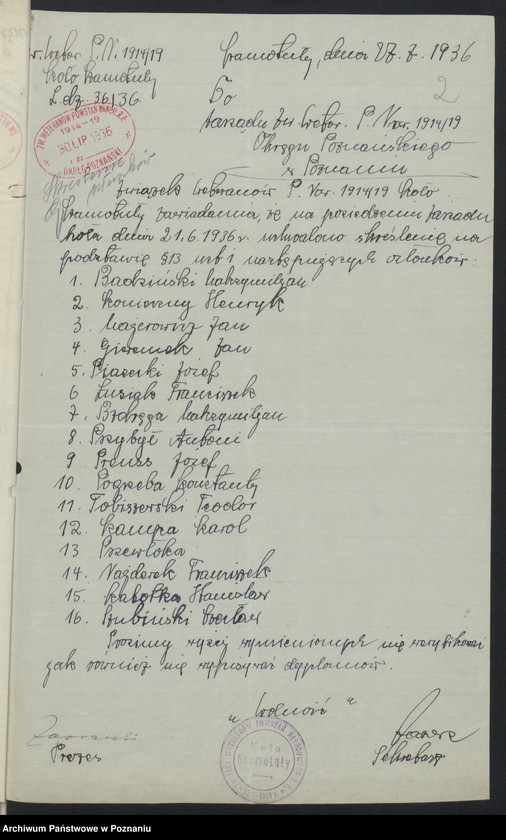 Zw. Weter. P. N. 1914/19
Koło Szamotuły
L.dz. 36/36.
Szamotuły, dnia 27.7.1936
2
Do
Zarządu Zw. Weter. P. Nar. 1914/19
Okręgu Poznańskiego
w Poznaniu
ZW. WETERANÓW POWSTAŃ NAROD. R.P.
1914-19
30 LIP. 1936
OKRĘG POZNAŃSKI
Związek Weteranów P. Nar. 1914/19 Koło
Szamotuły zawiadamia, że na posiedzeniu Zarządu
Koła dnia 21.6.1936 r. uchwalono skreślenie na
podstawie §13 ust 1 następujących członków:
1. Badziński Maksymiljan
2. Konieczny Henryk
3. Majerowicz Jan
4. Jan
5. Piasecki Józef
6 Łuziak Franciszek
7. Maksymiljan
8. Przybył Antoni
9 Preuss Józef
10. Pogrzeba Konstanty
11. Tobiszewski Teodor
12. Kampa Karol
13 Przewłoka
14. Najderek Franciszek
15. Kałużka Stanisław
16. Łubiński Wacław
Prosimy wyżej wymienionych nie weryfikować
jak również nie wypisywać dyplomów.
"Wolność"
Prezes
Koło
Szamotuły
Sekretarz
Archiwum Państwowe w Poznaniu